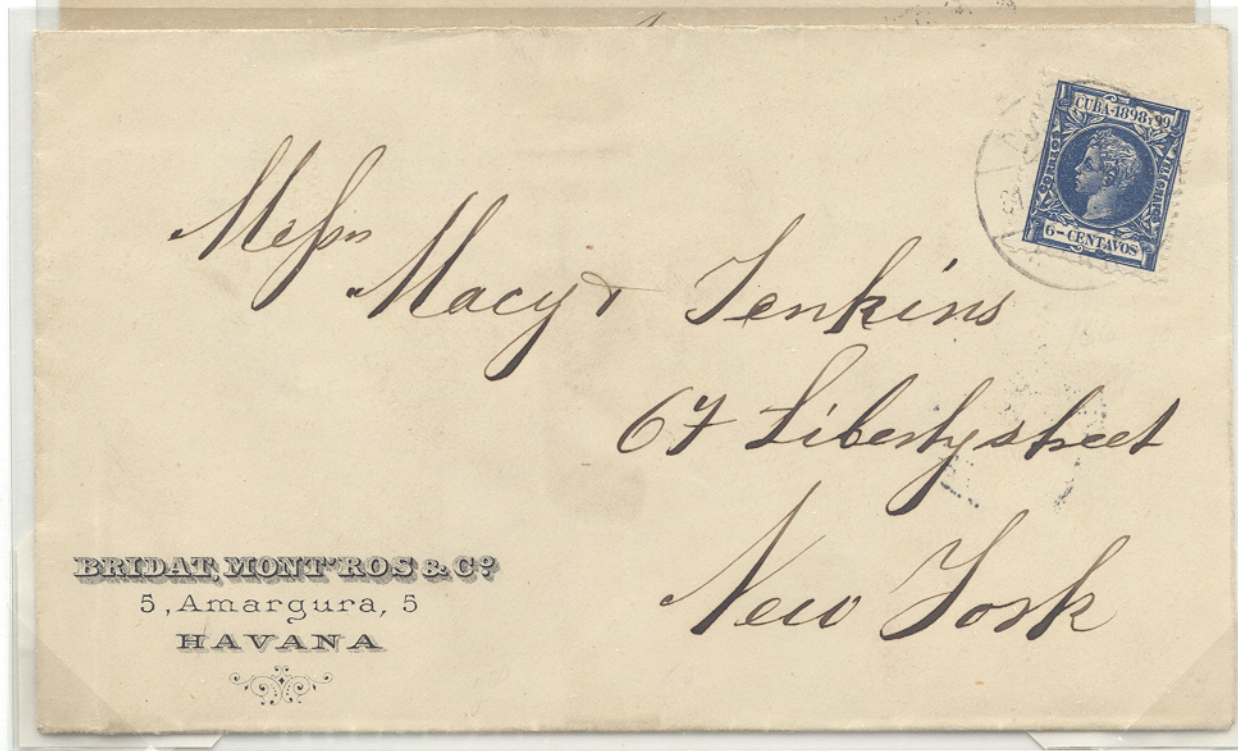 CUBA-1898 Y 99
CORREOS
6-CENTAVOS
Messrs
Macy & Jenkins
67 Liberty street
New York
BRIDAT, MONT'ROS & Cº
5, Amargura, 5
HAVANA